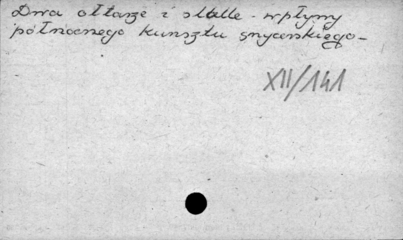 Dwa ołtarze i stalle - wpływy
północnego kunsztu snycerskiego -
XII/141